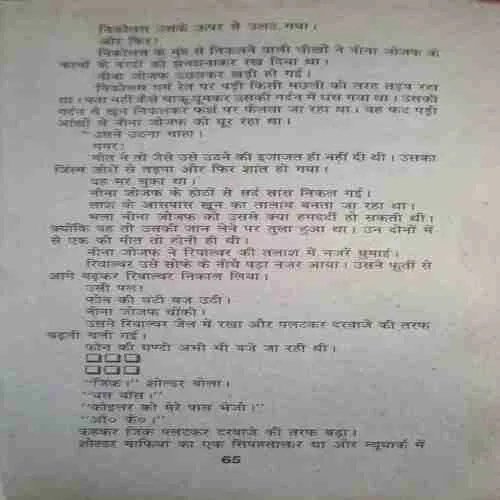 निकोलस उसके ऊपर से उलट गया।
और फिर!
निकोलस के मुंह से निकलने वाली चीखों ने नीना जोजफ के
कानों के पर्दों को झनझनाकर रख दिया था।
नीना जोजफ उछलकर खड़ी हो गई।
निकोलस गर्म रेत पर पड़ी किसी मछली की तरह तड़प रहा
था। पता नहीं कैसे चाकू घूमकर उसकी गर्दन में धंस गया था। उसकी
गर्दन से खून निकलकर फर्श पर फैलता जा रहा था। वह फट पड़ी
आंखों से नीना जोजफ को घूर रहा था।
उसने उठना चाहा।
मगर!
मौत ने तो जैसे उसे उठने की इजाजत ही नहीं दी थी। उसका
जिस्म जोरों से तड़पा और फिर शांत हो गया।
वह मर चुका था।
नीना जोजफ के होठों से सर्द सांस निकल गई।
लाश के आसपास खून का तालाब बनता जा रहा था।
भला नीना जोजफ को उससे क्या हमदर्दी हो सकती थी।
क्योंकि वह तो उसकी जान लेने पर तुला हुआ था। उन दोनों में
से एक की मौत तो होनी ही थी।
नीना जोजफ ने रिवाल्वर की तलाश में नजरें घुमाई।
रिवाल्वर उसे सोफे के नीचे पड़ा नजर आया। उसने फुर्ती से
आगे बढ़कर रिवाल्वर निकाल लिया।
उसी पल!
फोन की घंटी बज उठी।
नीना जोजफ चौंकी।
उसने रिवाल्वर जेब में रखा और पलटकर दरवाजे की तरफ
बढ़ती चली गई।
फोन की घण्टी अभी भी बजे जा रही थी।
"जिंक।" शोल्डर बोला।
"यस बॉस।"
"को मेरे पास भेजो।"
"ओ० के०।"
कहकर जिंक पलटकर दरवाजे की तरफ बढ़ा।
शोल्डर माफिया का एक सिपहसालार था और न्यूयार्क में
65